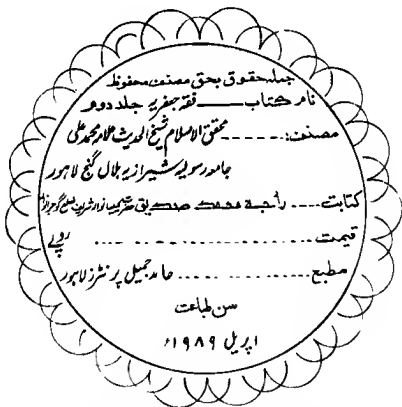 جملہ حقوق بحق مصنف محفوظ
نام کتاب ــــ فقہ جعفریہ جلد دوم
مصنف: ------ محقق الاسلام شیخ الحدیث علامہ محمد علی
جامعہ رسولیہ شیرازیہ بلال گنج لاہور
کتابت --- راجہ محمد صدیق حضرت کیلیانوالہ شریف ضلع گوجرانوالہ
قیمت ........ ........ روپے
مطبع ........ ........ حامد جمیل پرنٹرز لاہور
سن طباعت
اپریل ۱۹۸۹ء